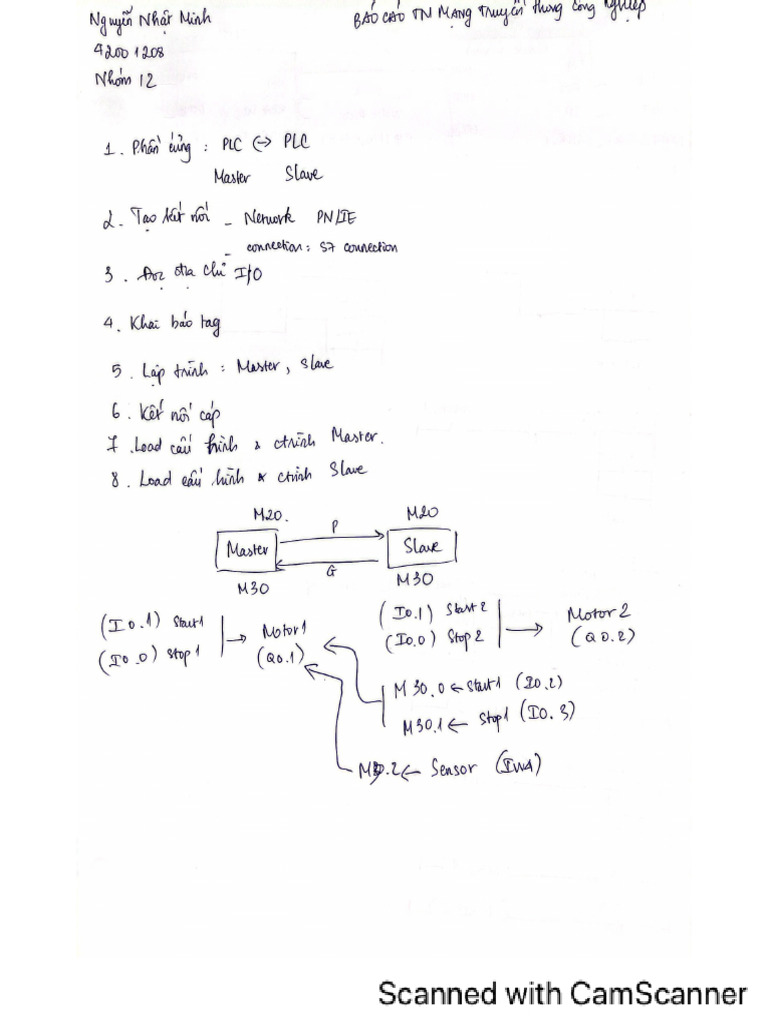 Nguyễn Nhật Minh
BÁO CÁO TN MẠNG Truyền thông công nghiệp
42001208
Nhóm 12
1. Phần cứng : PLC ↔ PLC
Master Slave
2. Tạo kết nối - Network PN/IE
- connection: S7 connection
3. Đọc địa chỉ I/O
4. Khai báo tag
5. Lập trình : Master, Slave
6. Kết nối cáp
7. Load cấu hình & ctrình Master.
8. Load cấu hình & ctrình Slave
M20. M20
Master P Slave
G
M30 M30
(I0.1) Start1
(I0.0) Stop1
→ Motor1
(Q0.1)
(I0.1) Start2
(I0.0) Stop2
→ Motor2
(Q0.2)
M30.0 ← Start1 (I0.2)
M30.1 ← Stop1 (I0.3)
.2 ← Sensor
Scanned with CamScanner